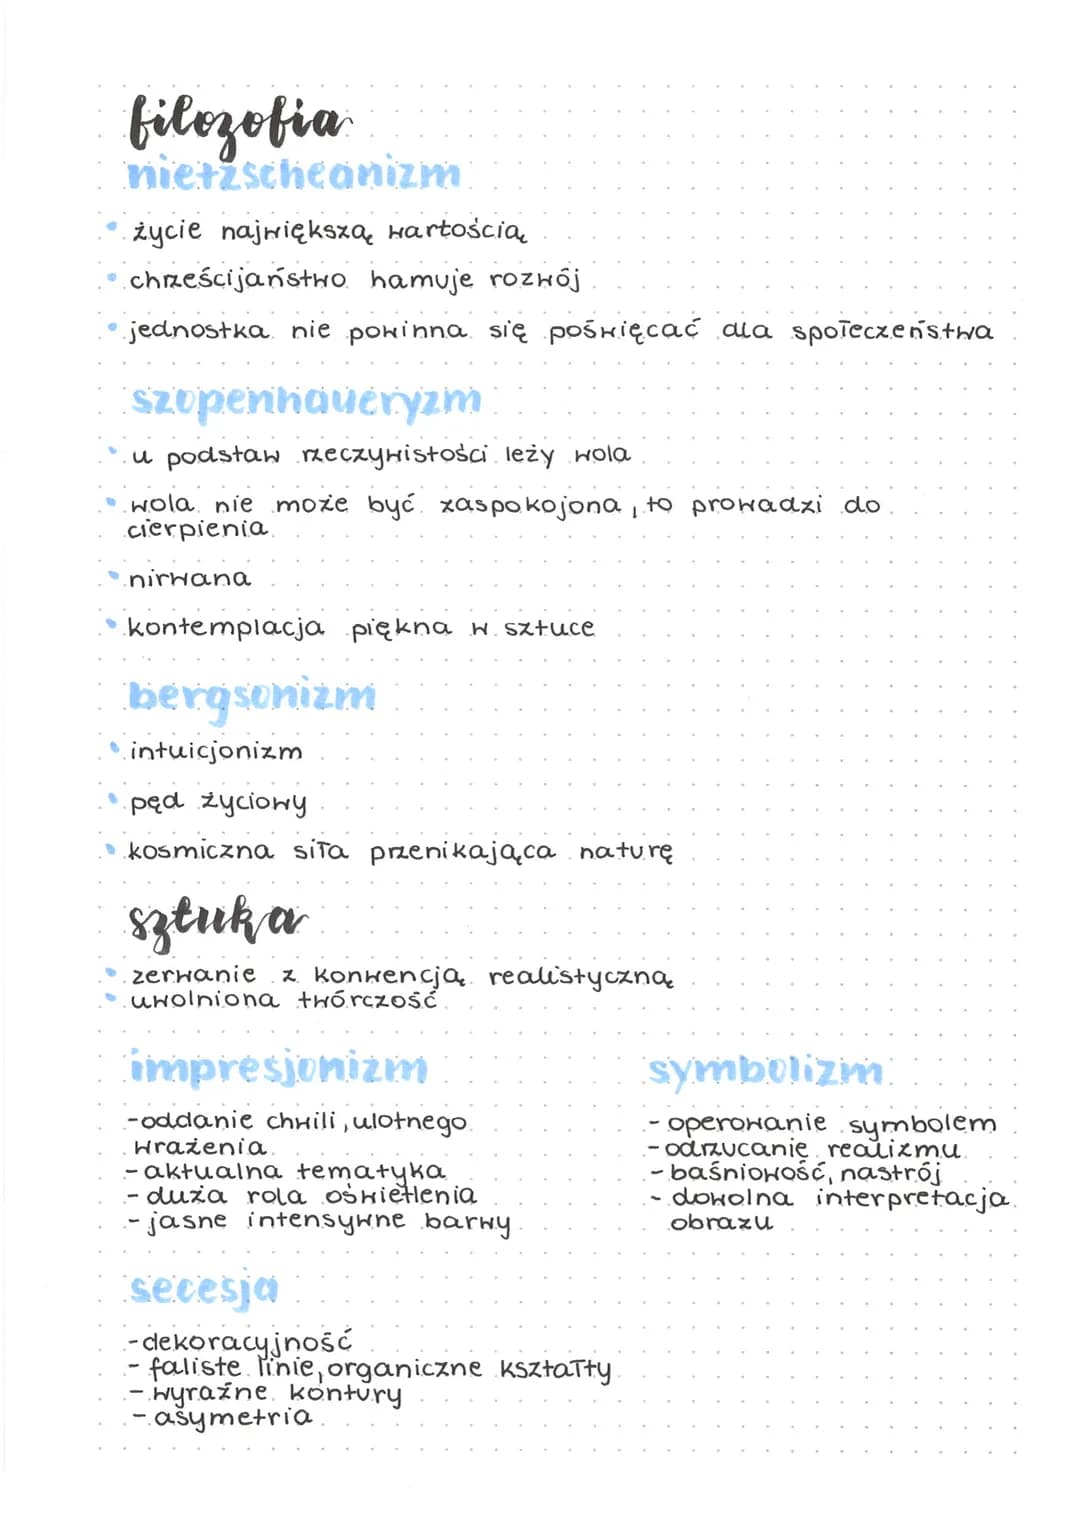 filozofia
nietzscheanizm
• życie największą wartością
• chrześcijaństwo hamuje rozwój
• jednostka nie powinna się poświęcać dla społeczeństwa
szopenhaueryzm
• u podstaw rzeczywistości leży wola
• wola nie może być zaspokojona, to prowadzi do
cierpienia
• nirwana
• kontemplacja piękna w sztuce
bergsonizm
• intuicjonizm
• pęd życiowy
• kosmiczna siła przenikająca naturę
sztuka
• zerwanie z konwencją realistyczną
• uwolniona twórczość
impresjonizm
- oddanie chwili, ulotnego
wrażenia
- aktualna tematyka
- duża rola oświetlenia
- jasne intensywne barwy
symbolizm
- operowanie symbolem
- odrzucanie realizmu
- baśniowość, nastrój
- dowolna interpretacja
obrazu
secesja
- dekoracyjność
- faliste linie, organiczne kształty
- wyraźne kontury
- asymetria